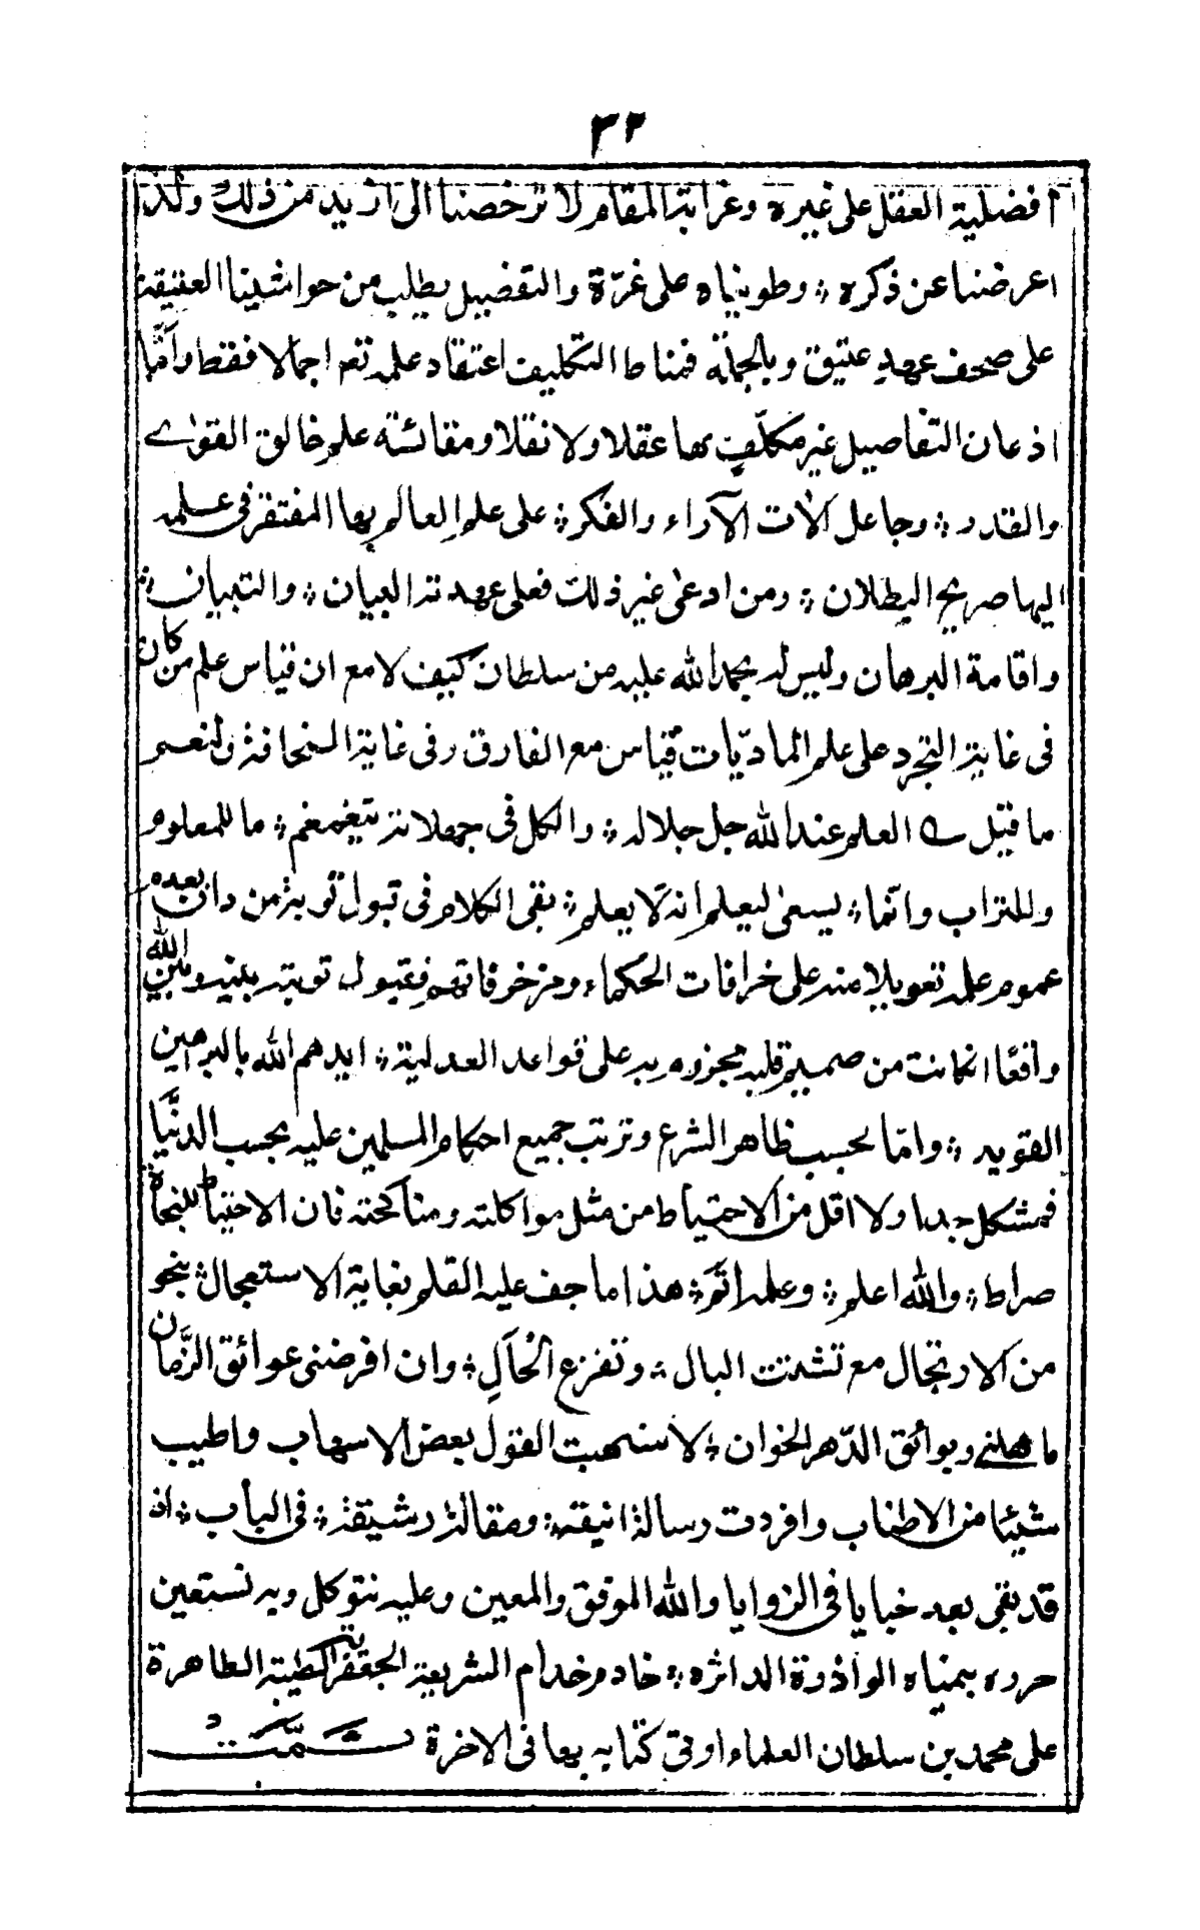 ٣٢
افضلية العقل على غيره وغرابة المقام لا ترخصنا الى ازيد من ذلك ولذا
اعرضنا عن ذكره ؛ وطويناه على غرّة والتفصيل يطلب من حواشينا العتيقة
على صحف عهد عتيق وبالجملة فمناط التكليف اعتقاد علمه تعم اجمالا فقط وامّا
اذعان التفاصيل غير مكلّف بها عقلا ولا نقلا ومقائسة علم خالق القواے
والقدر ؛ وجاعل آلات الآراء والفكر ؛ على علم العالم بها المفتقر فى علمه
اليها صريح البطلان ؛ ومن ادعى غير ذلك فعلى عهدته البيان ؛ والتبيان ؛
واقامة البرهان وليس له بحمد الله عليه من سلطان كيف لا مع ان قياس علم من كان
فى غاية التجرد على علم الماديّات قياس مع الفارق وفى غاية السخافة ولنعم
ما قيل ـ العلم عند الله جل جلاله ؛ والكل فى جهلاته يتغمغم ؛ ما للعلوم
وللتراب وانّما ؛ يسعى ليعلم انه لا يعلم ؛ بقى الكلام فى قبول توبة من دان بعده
عموم علمه تعويلا منه على خرافات الحكماء ومزخرفاتهم فقبول توبته بينه وبين الله
واقعًا انكانت من صميم قلبه مجزوم به على قواعد العدلية ؛ ايدهم الله بالبرهين
القويه ؛ وامّا بحسب ظاهر الشرع وترتب جميع احكام المسلمين عليه بحسب الدنيا
فمشكل جدا ولا اقل من الاحتياط من مثل مواكلته ومناكحته فان الاحتياط للنجاة
صراط ؛ والله اعلم ؛ وعلمه اتم ؛ هذا ما جف عليه القلم بغاية الاستعجال ؛ بنحو
من الارتجال مع تشتت البال ؛ وتفزع الحال ؛ وان افرضنى عوائق الزّمان
ما هلنے وبوائق الدّهر الخوان ؛ لاسهبت القول بعض الاسهاب واطيب
شيئا من الاطناب وافردت رسالة انيقة ؛ ومقالة رشيقة ؛ فى الباب ؛ اذ
قد بقى بعد خبايا فى الزوايا والله الموفق والمعين وعليه نتوكل وبه نستعين
حرره بيمناه الوازرة الداثره ؛ خادم خدام الشريعة الجعفرية الطيبة الطاهرة
على محمد بن سلطان العلماء اوتى كتابه بها فى الاخرة تمّت